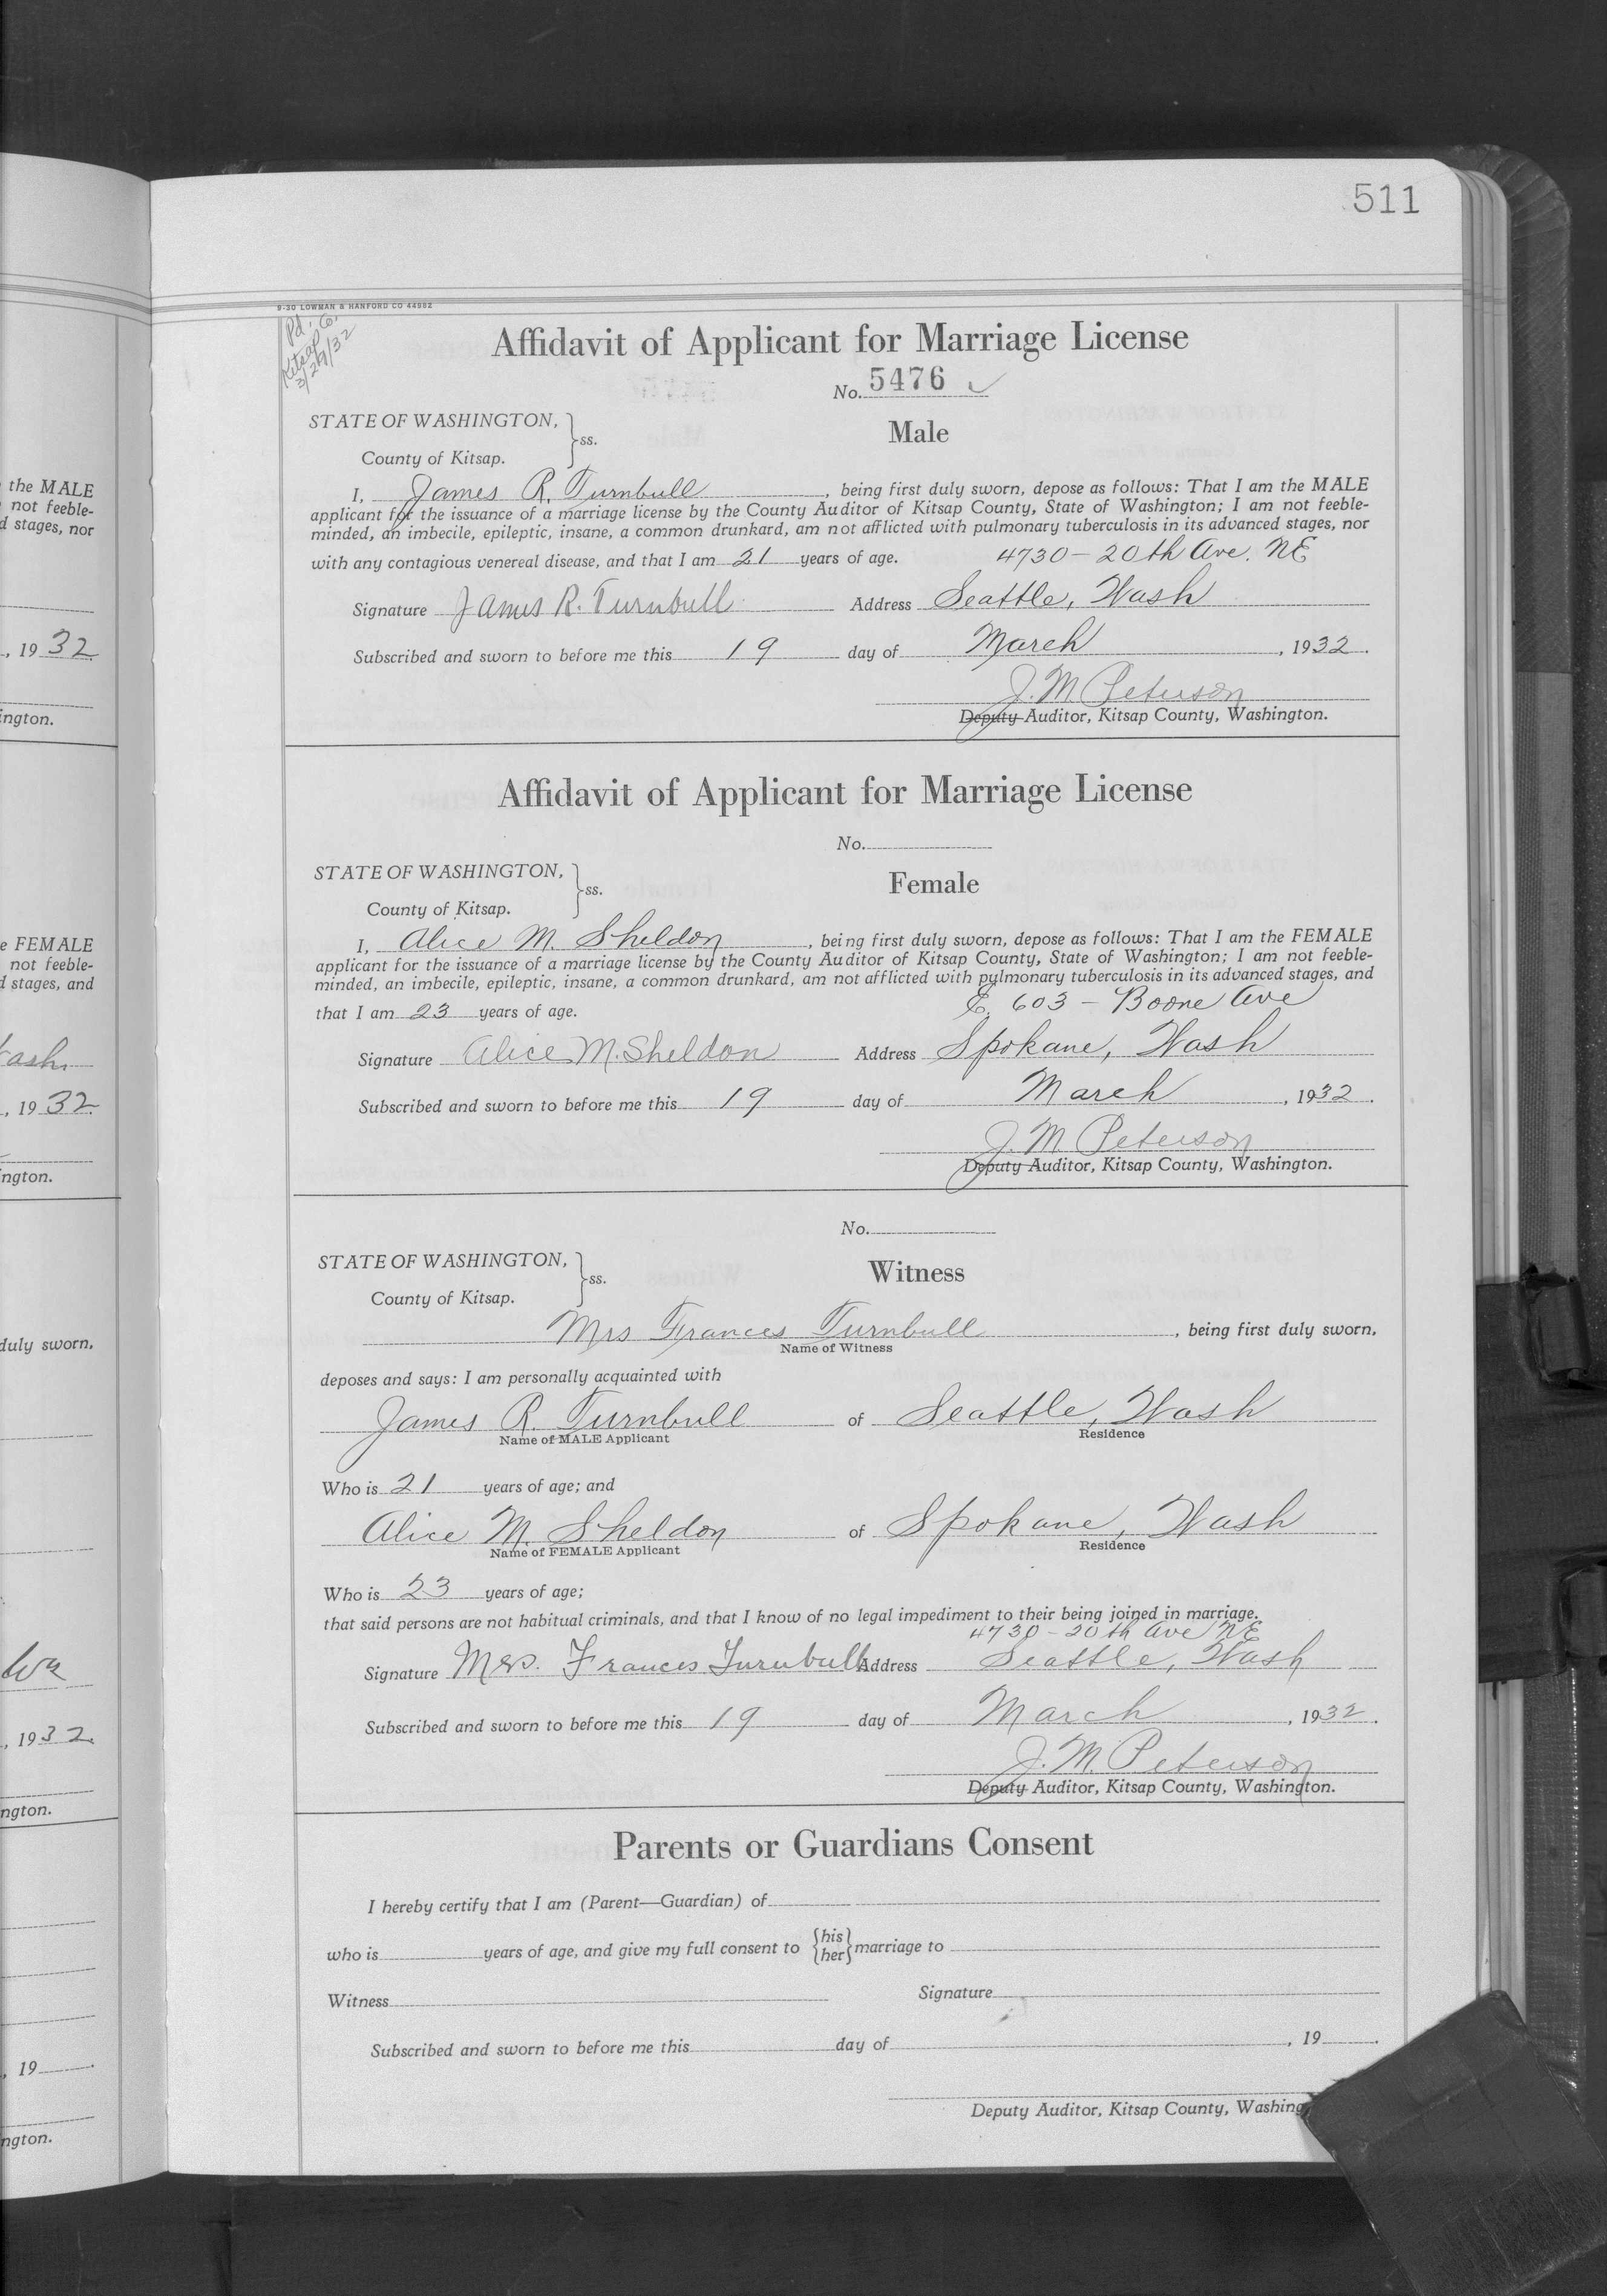 511
9-30 LOWMAN & HANFORD CO 44952
Pd. Co.
Kitsap
3/29/32
Affidavit of Applicant for Marriage License
No. 5476 ✓
STATE OF WASHINGTON,
County of Kitsap. } ss.
Male
I, James R. Turnbull, being first duly sworn, depose as follows: That I am the MALE
applicant for the issuance of a marriage license by the County Auditor of Kitsap County, State of Washington; I am not feeble-
minded, an imbecile, epileptic, insane, a common drunkard, am not afflicted with pulmonary tuberculosis in its advanced stages, nor
with any contagious venereal disease, and that I am 21 years of age. 4730 - 20th Ave. NE
Signature James R. Turnbull Address Seattle, Wash
Subscribed and sworn to before me this 19 day of March, 1932.
J. M. Peterson
Deputy Auditor, Kitsap County, Washington.
Affidavit of Applicant for Marriage License
No.
STATE OF WASHINGTON,
County of Kitsap. } ss.
Female
I, Alice M. Sheldon, being first duly sworn, depose as follows: That I am the FEMALE
applicant for the issuance of a marriage license by the County Auditor of Kitsap County, State of Washington; I am not feeble-
minded, an imbecile, epileptic, insane, a common drunkard, am not afflicted with pulmonary tuberculosis in its advanced stages, and
that I am 23 years of age. E. 603 - Boone Ave
Signature Alice M. Sheldon Address Spokane, Wash
Subscribed and sworn to before me this 19 day of March, 1932.
J. M. Peterson
Deputy Auditor, Kitsap County, Washington.
No.
STATE OF WASHINGTON,
County of Kitsap. } ss.
Witness
Mrs Frances Turnbull, being first duly sworn,
Name of Witness
deposes and says: I am personally acquainted with
James R. Turnbull of Seattle, Wash
Name of MALE Applicant Residence
Who is 21 years of age; and
Alice M. Sheldon of Spokane, Wash
Name of FEMALE Applicant Residence
Who is 23 years of age;
that said persons are not habitual criminals, and that I know of no legal impediment to their being joined in marriage.
4730 - 20th Ave NE
Signature Mrs. Frances Turnbull Address Seattle, Wash
Subscribed and sworn to before me this 19 day of March, 1932.
J. M. Peterson
Deputy Auditor, Kitsap County, Washington.
Parents or Guardians Consent
I hereby certify that I am (Parent—Guardian) of
who is years of age, and give my full consent to {his her} marriage to
Witness Signature
Subscribed and sworn to before me this day of , 19 .
Deputy Auditor, Kitsap County, Washing
the MALE
not feeble-
d stages, nor
, 19 32
ington.
e FEMALE
not feeble-
d stages, and
ash.
, 19 32.
ngton.
duly sworn,
Wn
, 19 32.
ngton.
, 19 .
ngton.